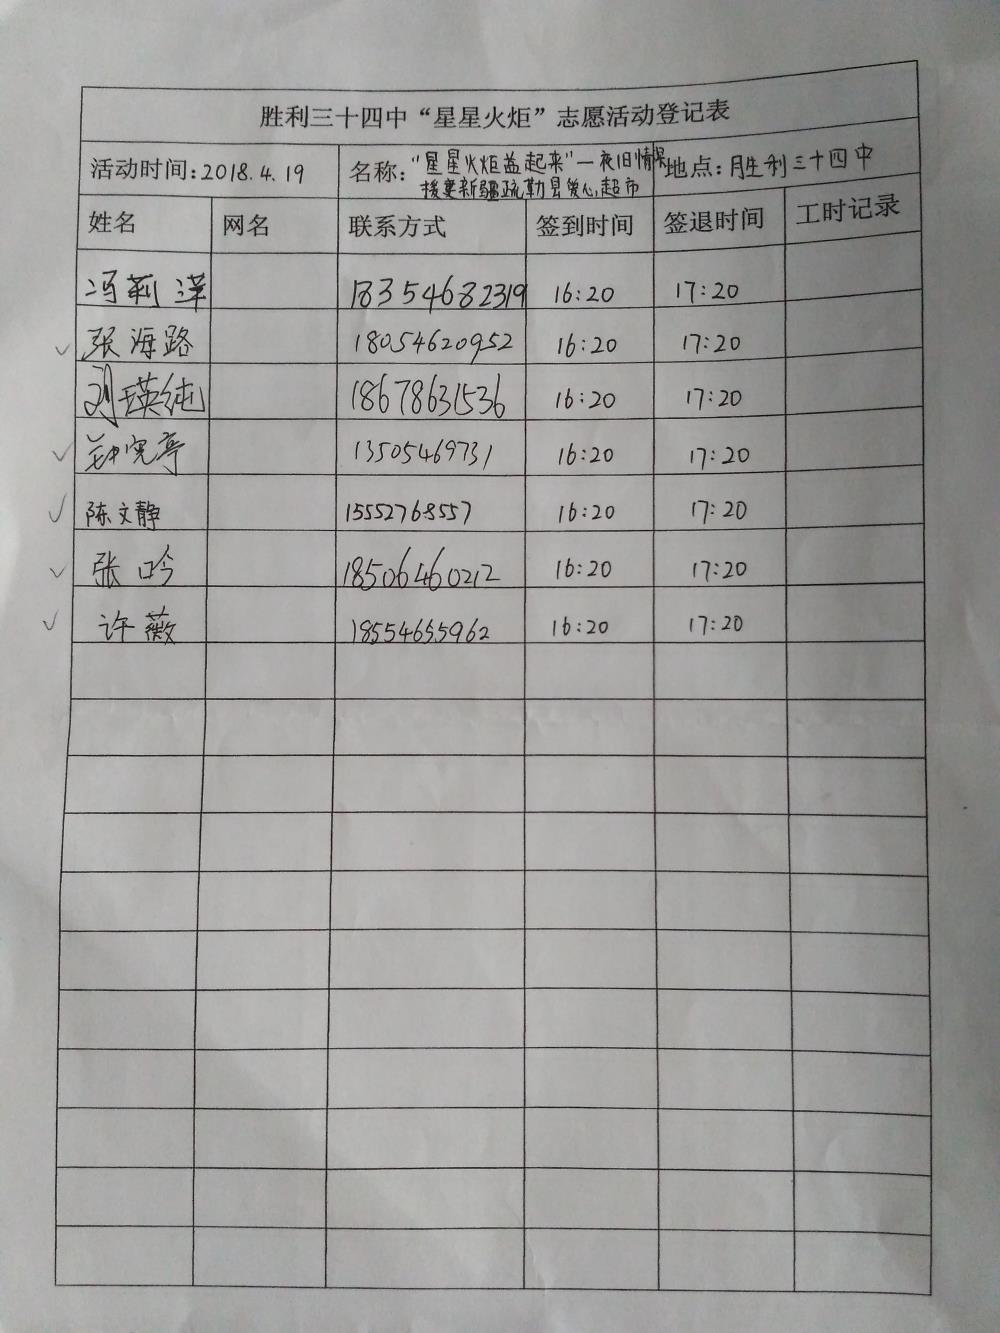 胜利三十四中“星星火炬”志愿活动登记表
活动时间:2018.4.19 名称:“星星火炬益起来”一夜旧情深 地点:胜利三十四中
援妻新疆疏勒县爱心超市
姓名 网名 联系方式 签到时间 签退时间 工时记录
冯莉泽 18354682319 16:20 17:20
张海路 18054620952 16:20 17:20
刘瑛纯 18678631536 16:20 17:20
亭 13505469731 16:20 17:20
陈文静 15552768557 16:20 17:20
张吟 18506460212 16:20 17:20
许薇 18554655962 16:20 17:20